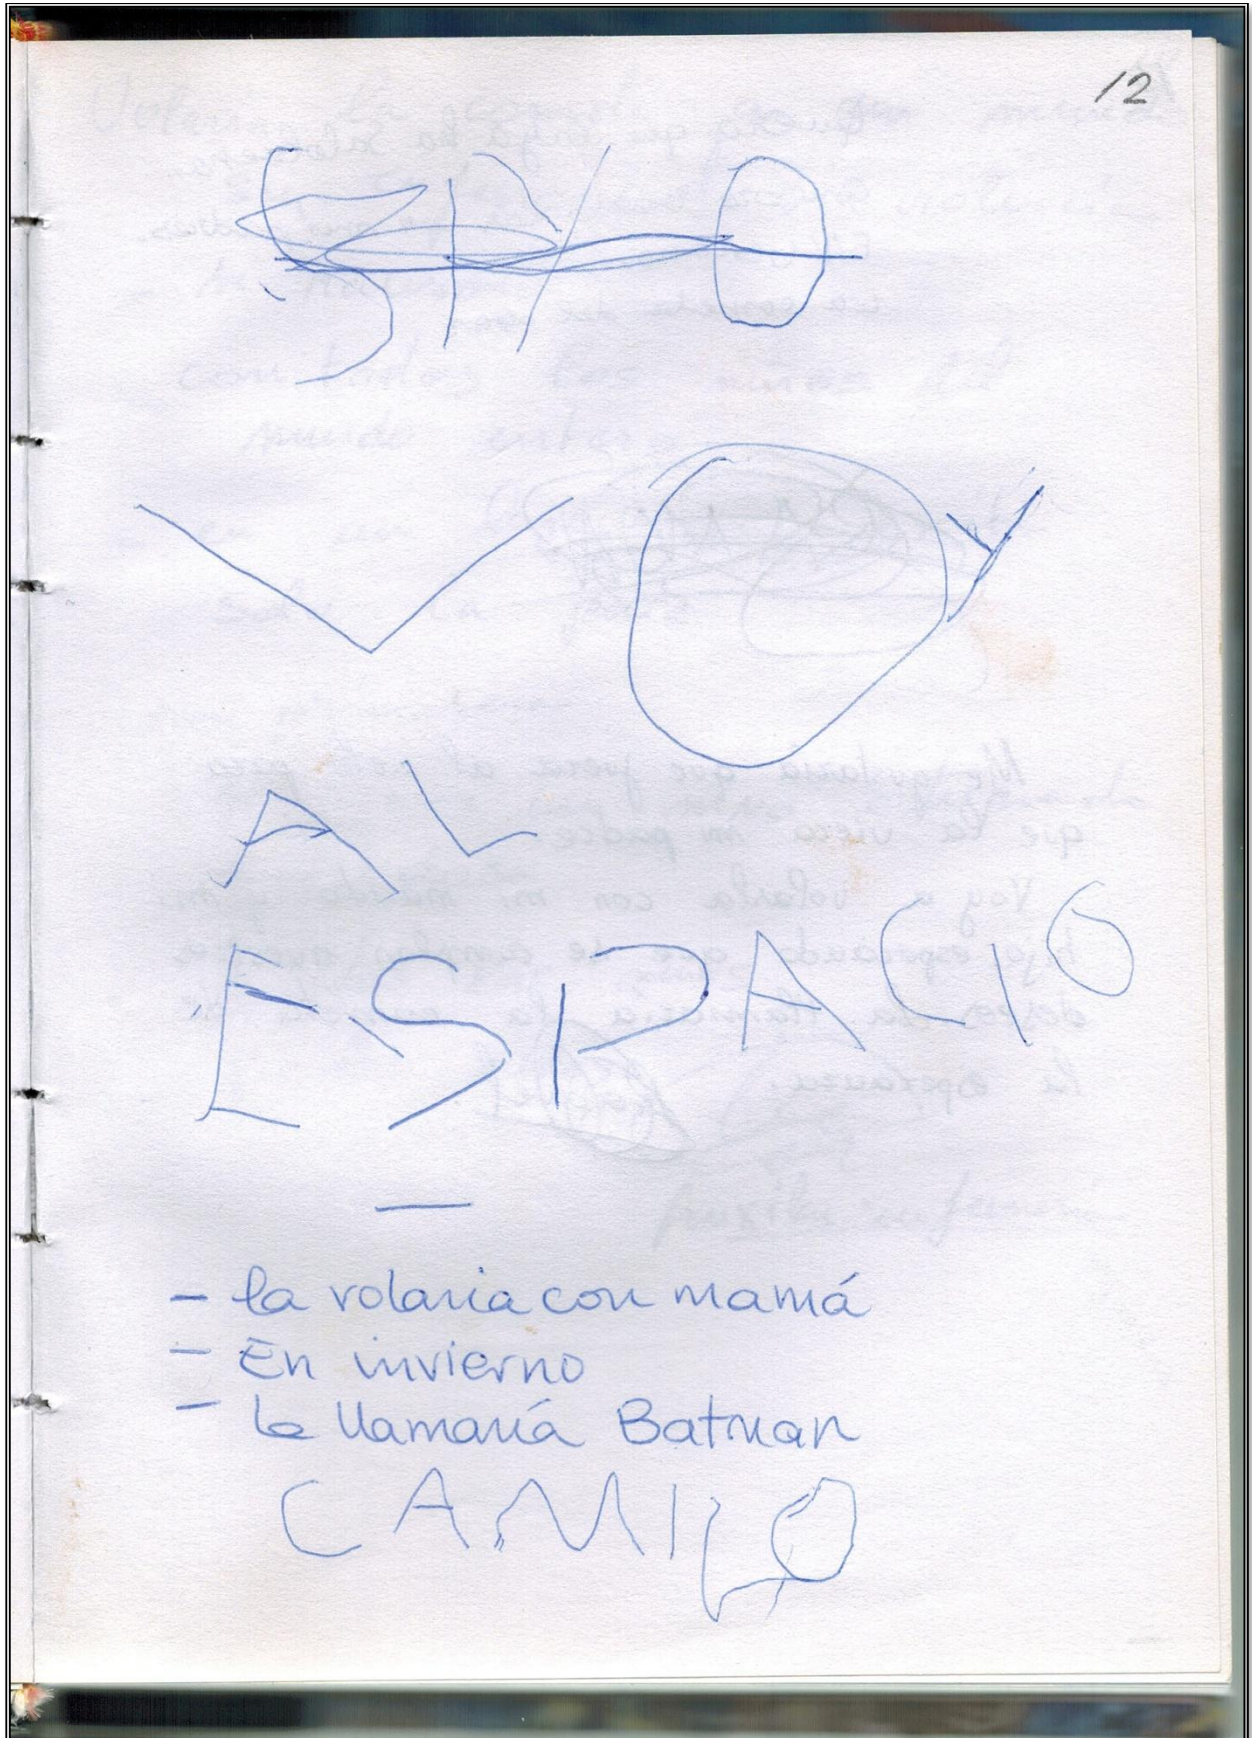 12
VOY
AL
ESPACIO
—
- la volaria con mamá
- En invierno
- la llamaría Batman
CAMILO